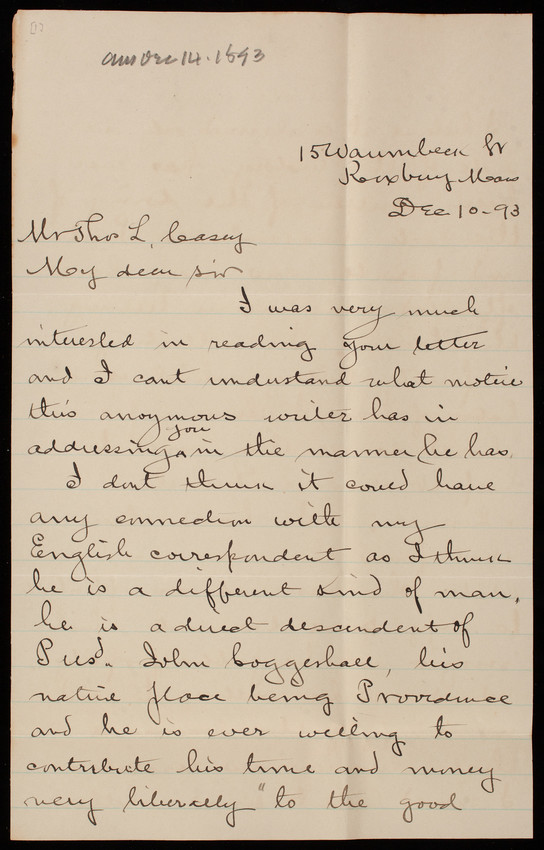 ans Dec 14. 1893
15 Waumbeck St
Roxbury Mass
Dec 10-93
Mr Thos L. Casey
My dear sir
I was very much
interested in reading your letter
and I cant understand what motive
this anoymous writer has in
addressing you in the manner he has.
I dont think it could have
any connection with my
English correspondent as I think
he is a different kind of man.
he is a direct descendent of
Presd. John Coggeshall, his
native place being Providence
and he is ever willing to
contribute his time and money
very liberally "to the good